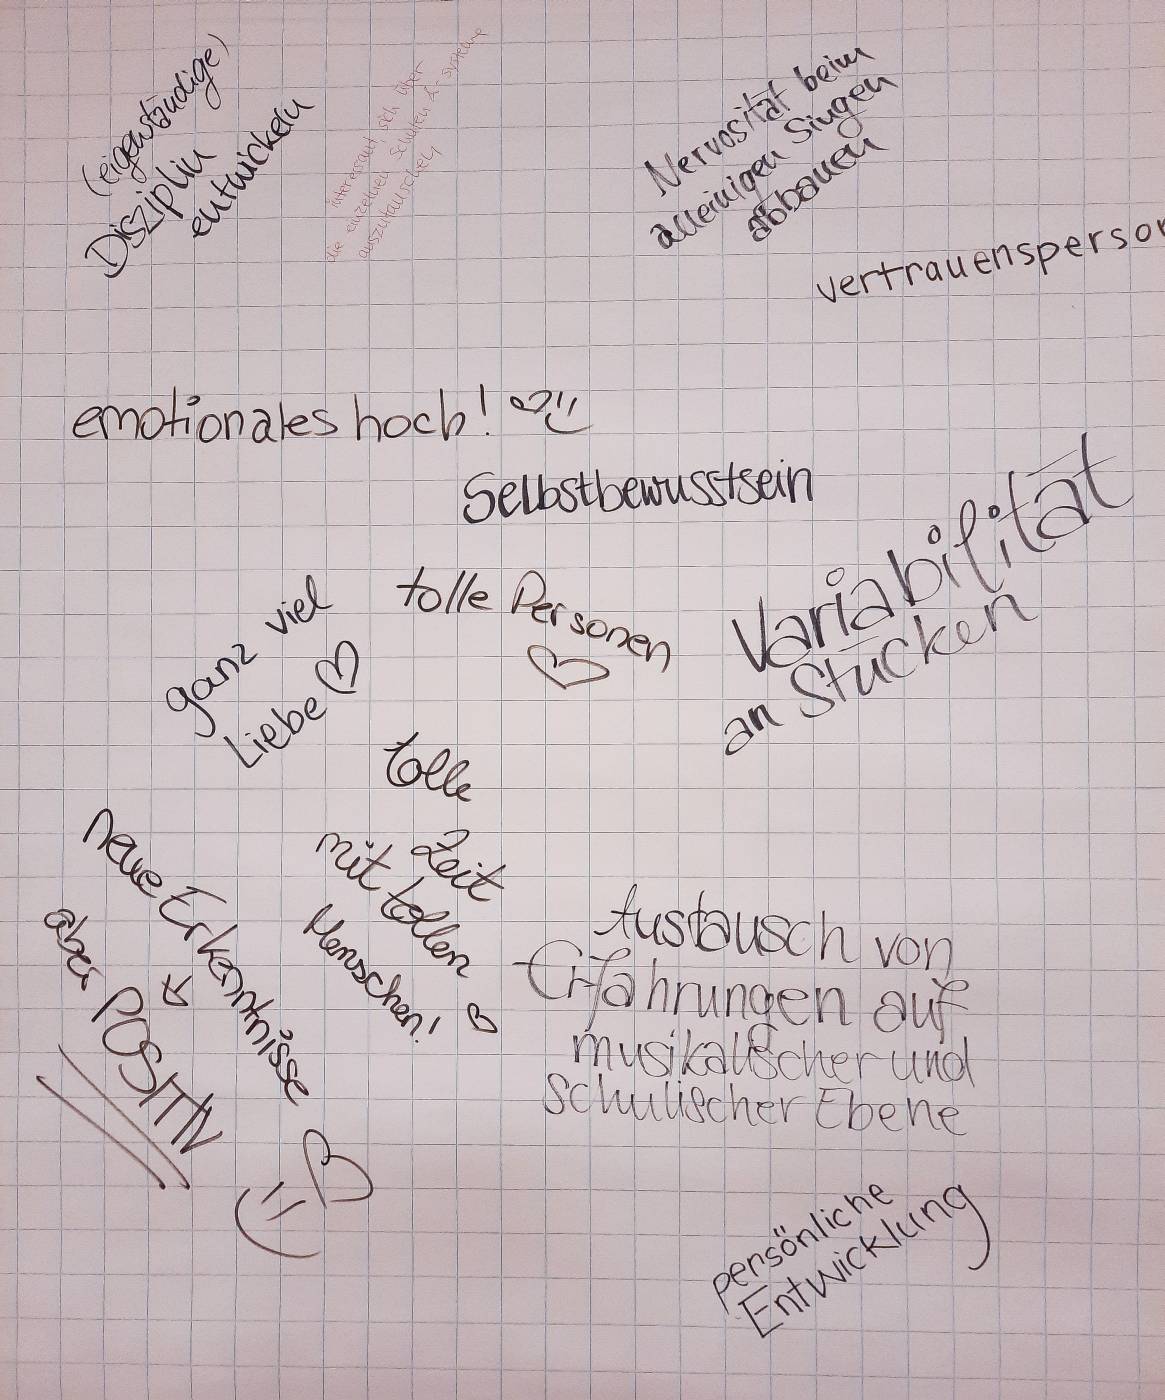 (eigenständige)
Disziplin
entwickeln
interessant, sich über
die einzelnen Schulen & -systeme
auszutauschen
Nervosität beim
alleinigen Singen
abbauen
vertrauensperson
emotionales hoch!
Selbstbewusstsein
tolle Personen
ganz viel
Liebe
Variabilität
an Stücken
tolle
Zeit
mit tollen
Menschen!
neue Erkenntnisse
aber POSITIV
Austausch von
Erfahrungen auf
musikalischer und
schulischer Ebene
persönliche
Entwicklung